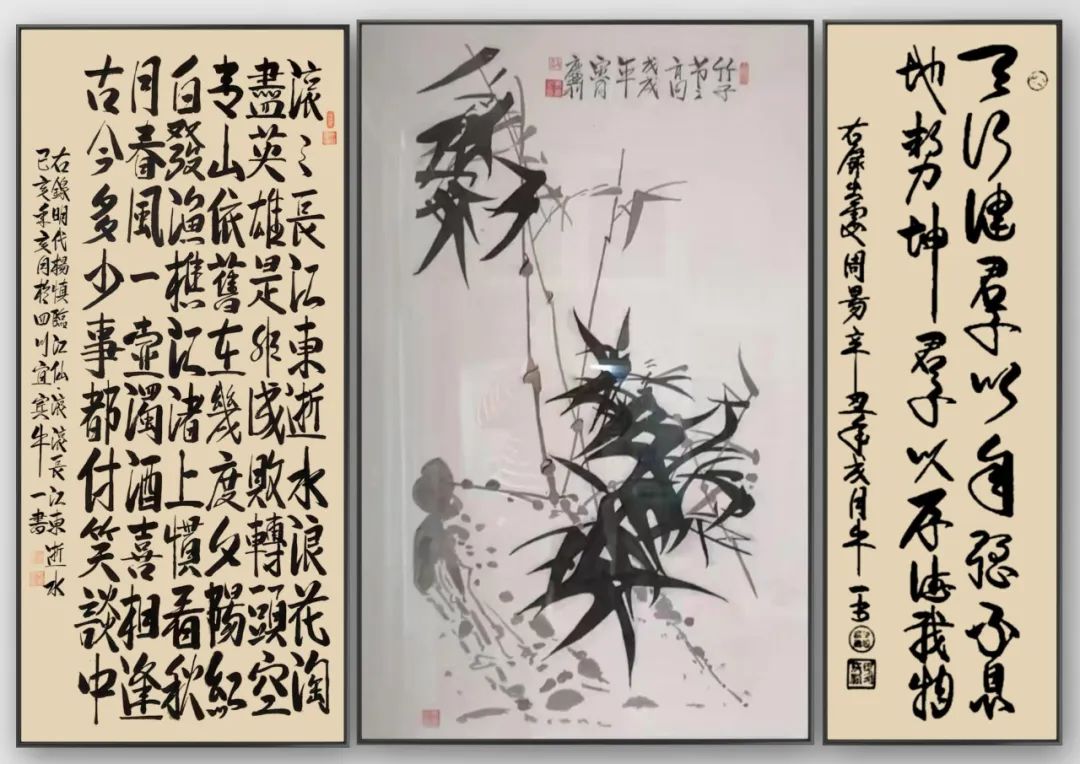 滚〻長江東逝水浪花淘
盡英雄是非成敗轉頭空
青山依舊在幾度夕陽紅
白發漁樵江渚上慣看秋
月春風一壺濁酒喜相逢
古今多少事都付笑談中
右錄明代楊慎臨江仙滚滚長江東逝水
己亥年亥月於四川宜賓牛一書
竹子
节〻
高
戊戌
年
天行健君子以自强不息
地势坤君子以厚德载物
右錄周易辛丑年戌月牛一书